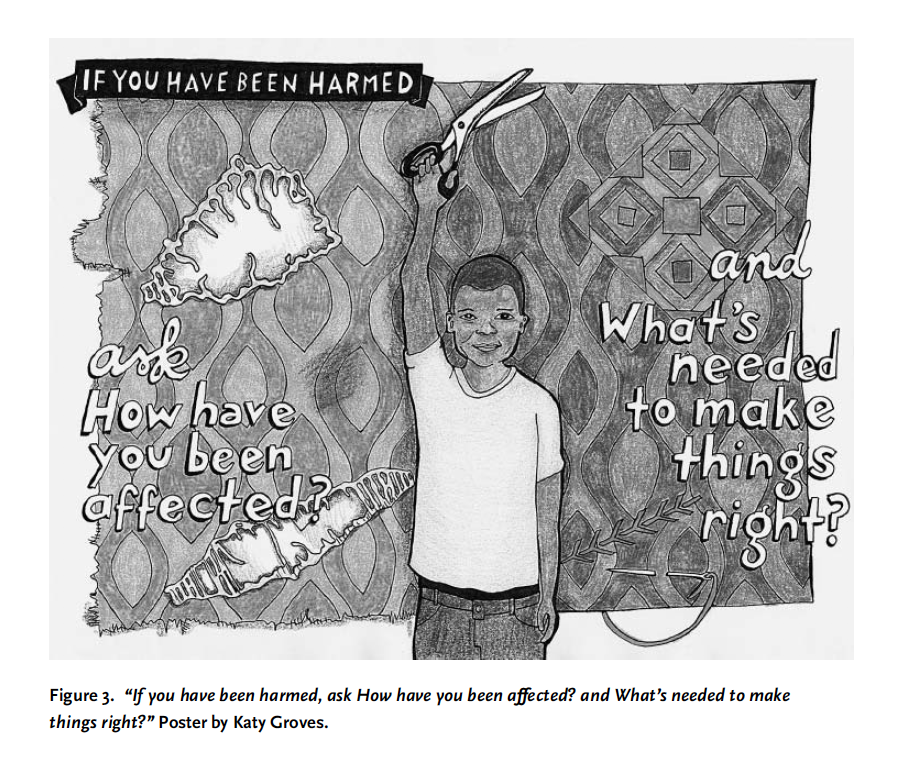 IF YOU HAVE BEEN HARMED
ask
How have
you been
affected?
and
What's
needed
to make
things
right?
Figure 3. “If you have been harmed, ask How have you been affected? and What’s needed to make
things right?” Poster by Katy Groves.